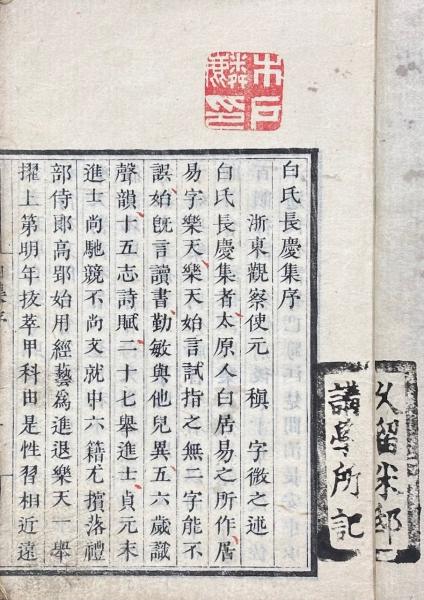 久留米邸
講學所記
白氏長慶集序
浙東觀察使元 稹 字微之述
白氏長慶集者太原人白居易之所作居
易字樂天樂天始言試指之無二字能不
誤始旣言讀書勤敏與他兒異五六歲識
聲韻十五志詩賦二十七舉進士貞元末
進士尚馳競不尚文就中六籍尤擯落禮
部侍郎高郢始用經藝為進退樂天一舉
擢上第明年拔萃甲科由是性習相近遠